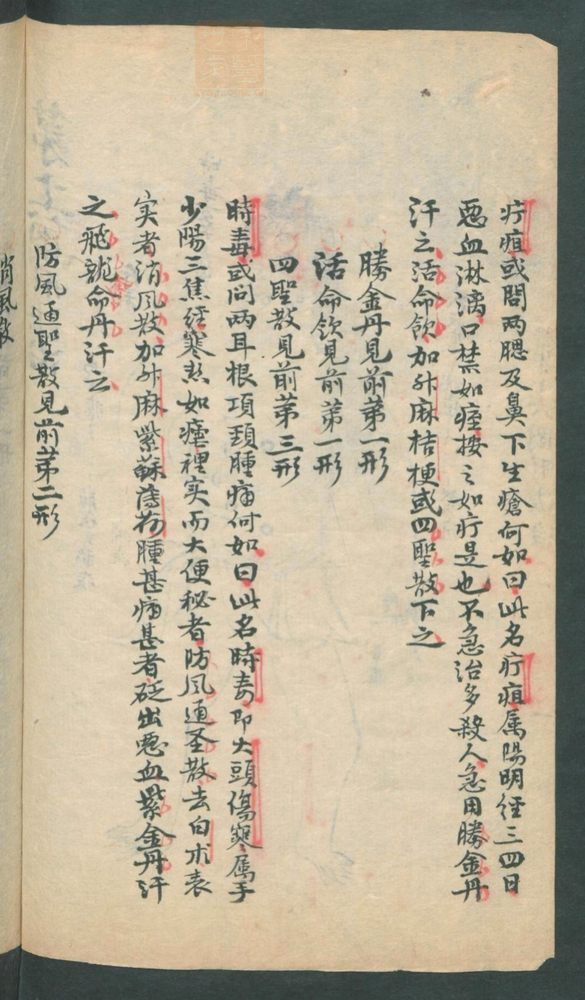 疔疽或問两腮及鼻下生瘡何如曰此名疔疽属陽明径三四日
惡血淋漓口禁如痙按之如疔是也不急治多殺人急用勝金丹
汗之活命飲加升麻桔梗或四聖散下之
勝金丹見前苐一形
活命飲見前苐一形
四聖散見前苐三形
時毒或问两耳根项頚腫痛何如曰此名時毒即大頭傷寒属手
少陽三焦經寒热如瘧裡实而大便秘者防风通圣散去白术表
实者消风散加升麻紫蘇薄荷腫甚痛甚者砭出惡血紫金丹汗
之飛龍奪命丹汗之
防風通聖散見前苐二形
消風散